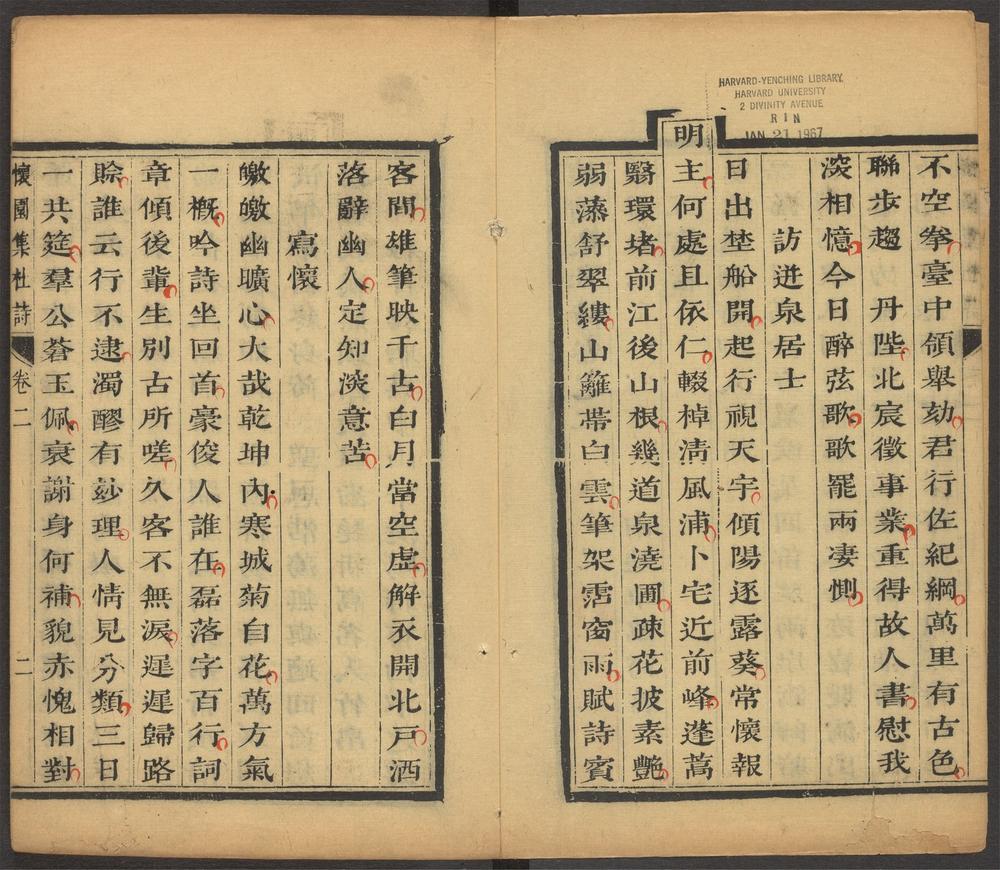 HARVARD-YENCHING LIBRARY
HARVARD UNIVERSITY
2 DIVINITY AVENUE
RIN
JAN 21 1967
不空拳臺中領舉劾君行佐紀綱萬里有古色
聯步趨 丹陛北宸徵事業重得故人書慰我
深相憶今日醉弦歌歌罷兩凄惻
訪迸泉居士
日出埜船開起行視天宇傾陽逐露葵常懷報
明主何處且依仁輟棹淸風浦卜宅近前峰蓬蒿
翳環堵前江後山根幾道泉澆圃疎花披素艷
弱藻舒翠縷山籬帶白雲筆架霑窗雨賦詩賓
客間雄筆映千古白月當空虛解衣開北戸洒
落辭幽人定知深意苦
寫懷
皦皦幽曠心大哉乾坤內寒城菊自花萬方氣
一概吟詩坐回首豪俊人誰在磊落字百行詞
章傾後輩生別古所嗟久客不無淚遲遲歸路
賒誰云行不逮濁醪有玅理人情見分類三日
一共筵羣公蒼玉佩衰謝身何補貌赤愧相對
懷園集杜詩 卷二 二